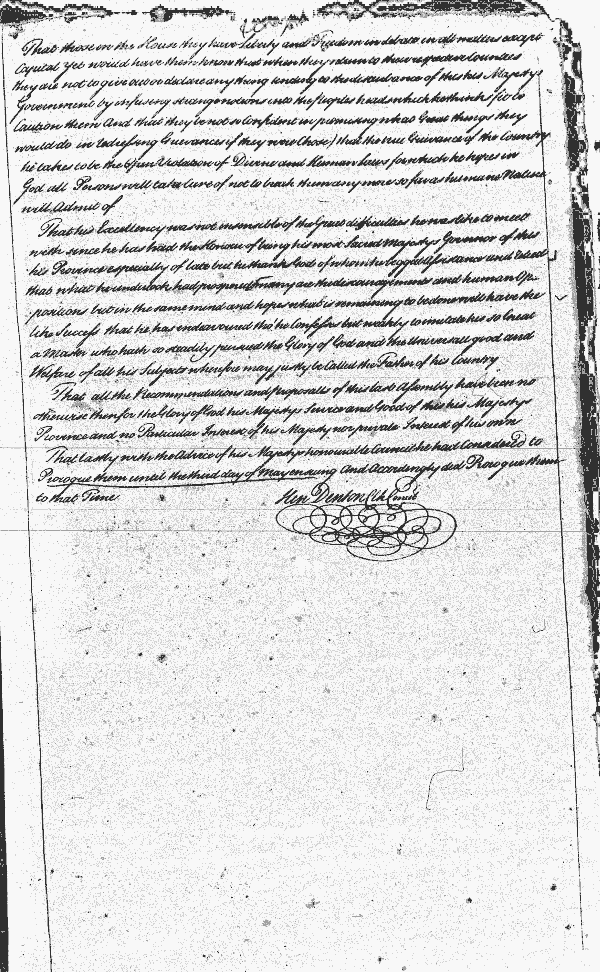 That those in the House they have Liberty and Freedom in debate in all matters except
Capital yet would have them know that when they return to their respective Counties
they are not to give out or declare any thing tending to the disturbance of this his Majestys
Government by infusing strange notions into the peoples heads which he thinks fit to
Caution them And that they be not so Confident in promising what Great things they
would do in redressing Grievances if they were Chose) that the true Grievance of the Country
he takes to be the Open Violation of Divine and Human Laws for which he hopes in
God all Persons will take Care of not to break them any more so far as humane Nature
will Admit of
That his Excellency was not insensible of the Great difficulties he was like to meet
with since he has had the Honour of being his most Sacred Majestys Governor of this
his Province especially of late but he thanks God of whom he begged Assistance and
that what he undertook had prospered many are the discouragements and human Op-
positions but in the same mind and hopes what is remaining to be done will have the
like Success that he has endeavoured tho' he Confesses but weakly to imitate his so Great
a Master who hath so steadily pursued the Glory of God and the Universal good and
Welfare of all his Subjects wherefore may justly be Called the Father of his Country
That all the Recommendations and proposalls of this last Assembly have been no
otherwise then for the Glory of God his Majestys Service and Good of this his Majestys
Province and no Particular Interest of his Majesty nor private Interest of his own
That lastly with the Advice of his Majestys honourable Council he had Considered to
Prorogue them until the third day of May ensuing And Accordingly did Prorogue them
to that Time
Hen Denton Clk Council